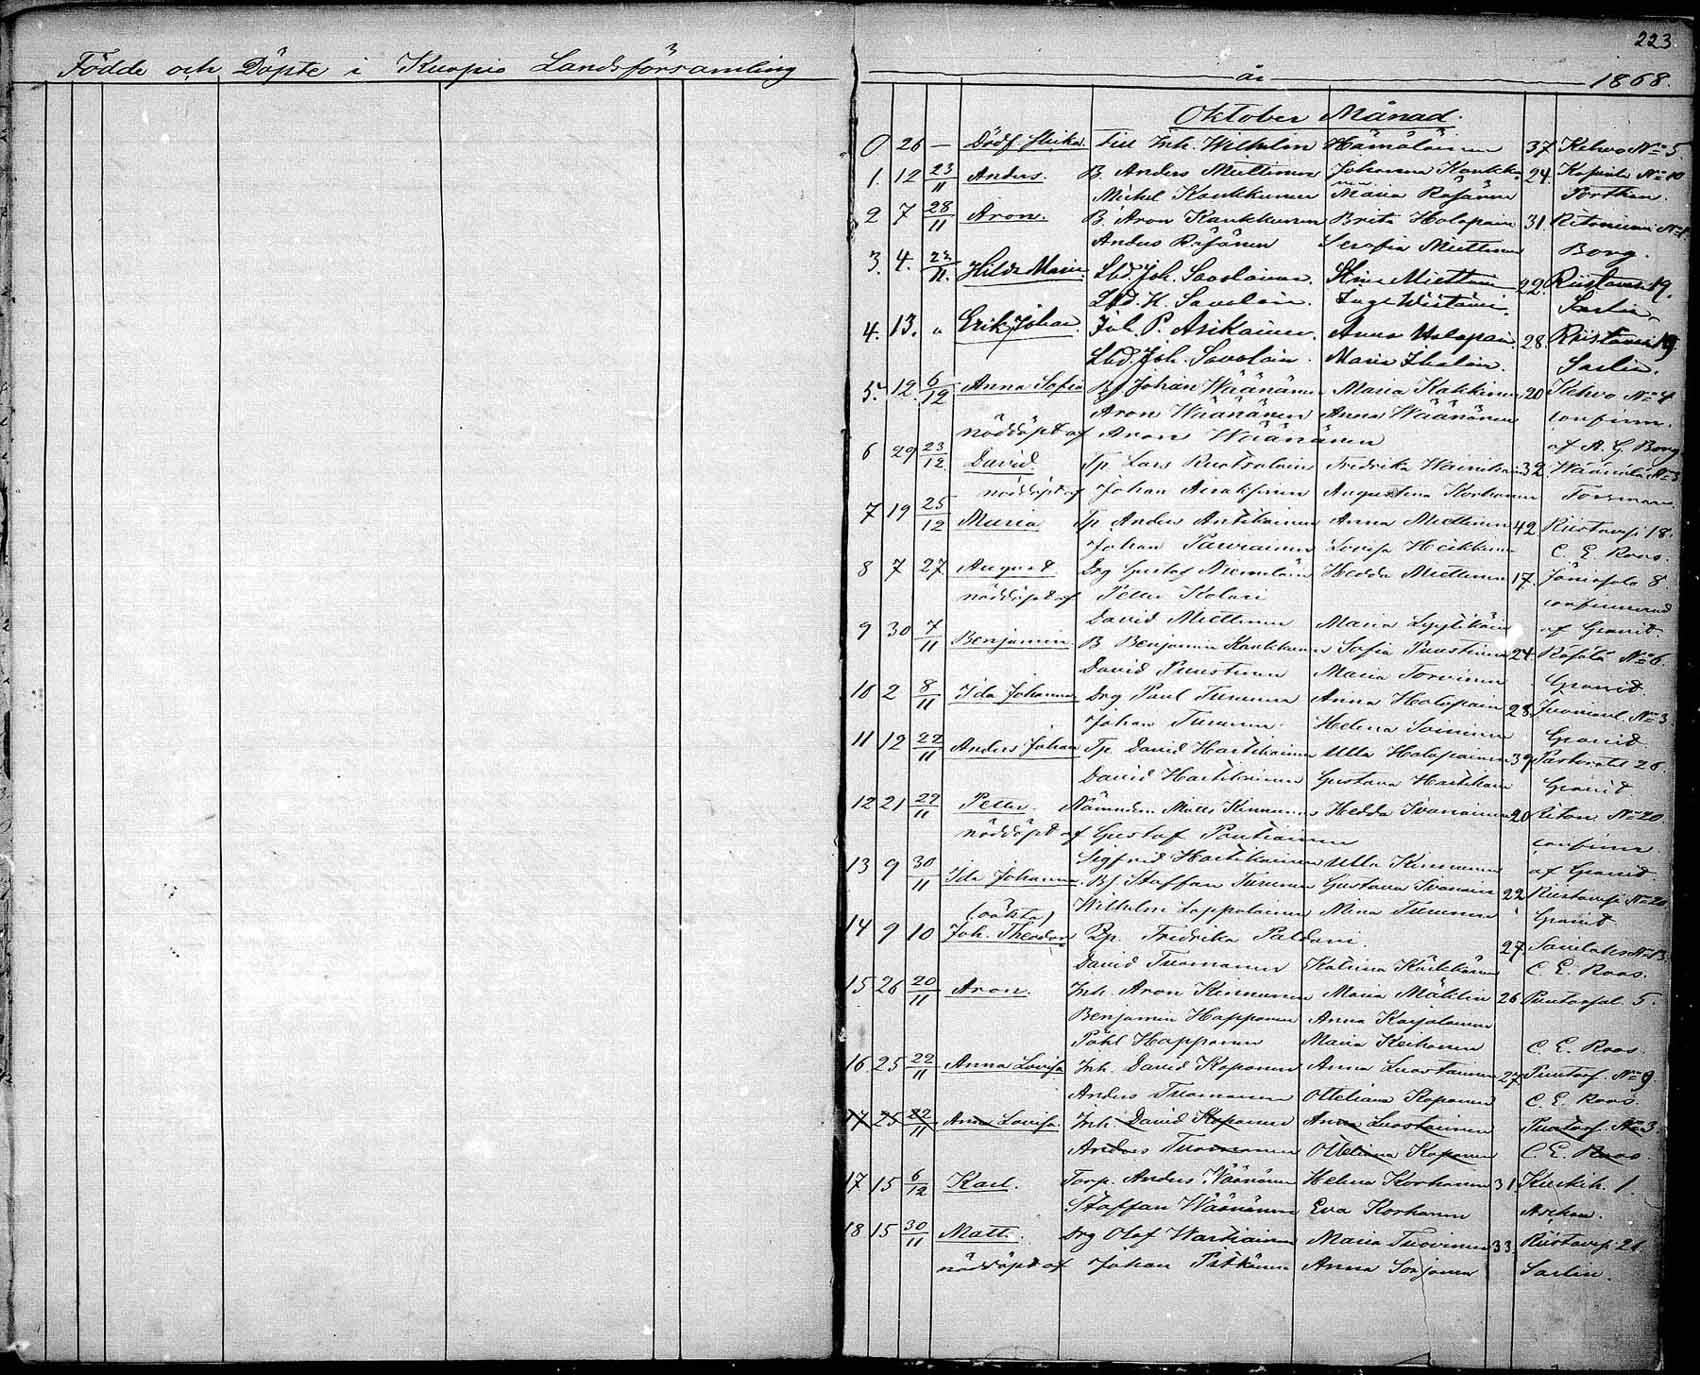 223
Födde och Döpte i Kuopio Landsförsamling
år 1868.
Oktober Månad.
0 26 — Dödf. flicka. Inh. Wilhelm Hämäläinen 37 Kehvo No 5.
1. 12 23/11 Anders. B. Anders Miettinen Johanna Kaukku- 24. No 10
Michel Kaukkunen nen Maria Räsänen Porthan.
2 7 28/11 Aron. B. Aron Kaukkunen Brita Holopain 31. Ritoniemi No 1.
Anders Räsänen Serafia Miettinen Borg.
3. 4. 23/11. Hilda Maria Lbd. Joh. Savolainen. Stina Miettinen 22. Riistaves. 19.
Lbd. K. Savolain. Inga Sarlin.
4. 13. " Erik Johan. Joh. P. Asikainen. Anna Holopain. 28. Riistavesi 19
Lbd. Joh. Savolain. Maria Sarlin.
5. 12. 6/12 Anna Sofia Bj Johan Wäänänen Maria Kakkinen 20 Kehvo No 4
Aron Wäänänen Anna Wäänänen confirm.
nöddöpt af Aron Wäänänen af A. G. Borg
6 29 23/12 David. Tp Lars Ruotsalain Fredrika 32. No 3
nöddöpt af Johan Airaksinen Augustina Korhonen Forsman
7 19 25/12 Maria Tp Anders Antikainen Anna Miettinen 42 Riistavesi 18.
Johan Parviainen Lovisa Heikkinen C. E. Roos.
8 7 27 August Drg Gustaf Niemeläin Hedda Miettinen 17. Jäniksela 8.
nöddöpt af Petter Kolari confirmerad
David Miettinen Maria Lyytikäin af Granit
9 30 7/11 Benjamin B Benjamin Kaukkunen Sofia Puustinen 24. Räsälä No 6.
David Puustinen Maria Torvinen Granit
10 2 8/11 Ida Johanna Drg Paul Turunen Anna Holopain 28. No 3
Johan Turunen. Helena Soininen Granit.
11 12 22/11 Anders Johan Tp David Hartikainen Ulla Holopainen 39 26.
David Hartikainen Gustava Hartikain Granit
12 21 29/11 Petter. Nämndem. Matts Kinnunen Hedda Ivanainen 20 Riton. No 20.
nöddöpt af Gustaf Pontiainen confirm.
Sigfrid Hartikainen Ulla Kinnunen af Granit
13 9 30/11 Ida Johanna. Bj. Staffan Turunen Gustava Ivanain 22 Riistavesi No 20
Wilhelm Lappalainen Mina Turunen Granit.
(oäkta)
14 9 10 Joh. Theodor Bp. Fredrika Paldani. 27. Savilaks No 13.
David Tuomanen Katrina Kärkkäinen C. E. Roos.
15 26 20/11 Aron. Inh. Aron Kinnunen Maria Mähkin 26 Puutosal. 5.
Benjamin Happonen Anna Karjalainen
Påhl Happonen Maria Keihonen C. E. Roos.
16 25 22/11 Anna Lovisa Inh. David Koponen Anna Luostainen 27 Puutos. No 9
Anders Tuomanen Otteliana Koponen C. E. Roos.
17 25 22/11 Anna Lovisa. Inh. David Koponen Anna Luostainen Puutos. No 3.
Anders Tuomanen Otteliana Koponen C. E. Roos.
17 15 6/12 Karl. Torp. Anders Wäänänen Helena Korhonen 31. 1.
Staffan Wäänänen Eva Korhonen
18 15 30/11 Matt. Drg Olof Wartiainen Maria Tuovinen 33. Riistavesi 21.
nöddöpt af Johan Pitkänen Anna Sorjonen Sarlin.